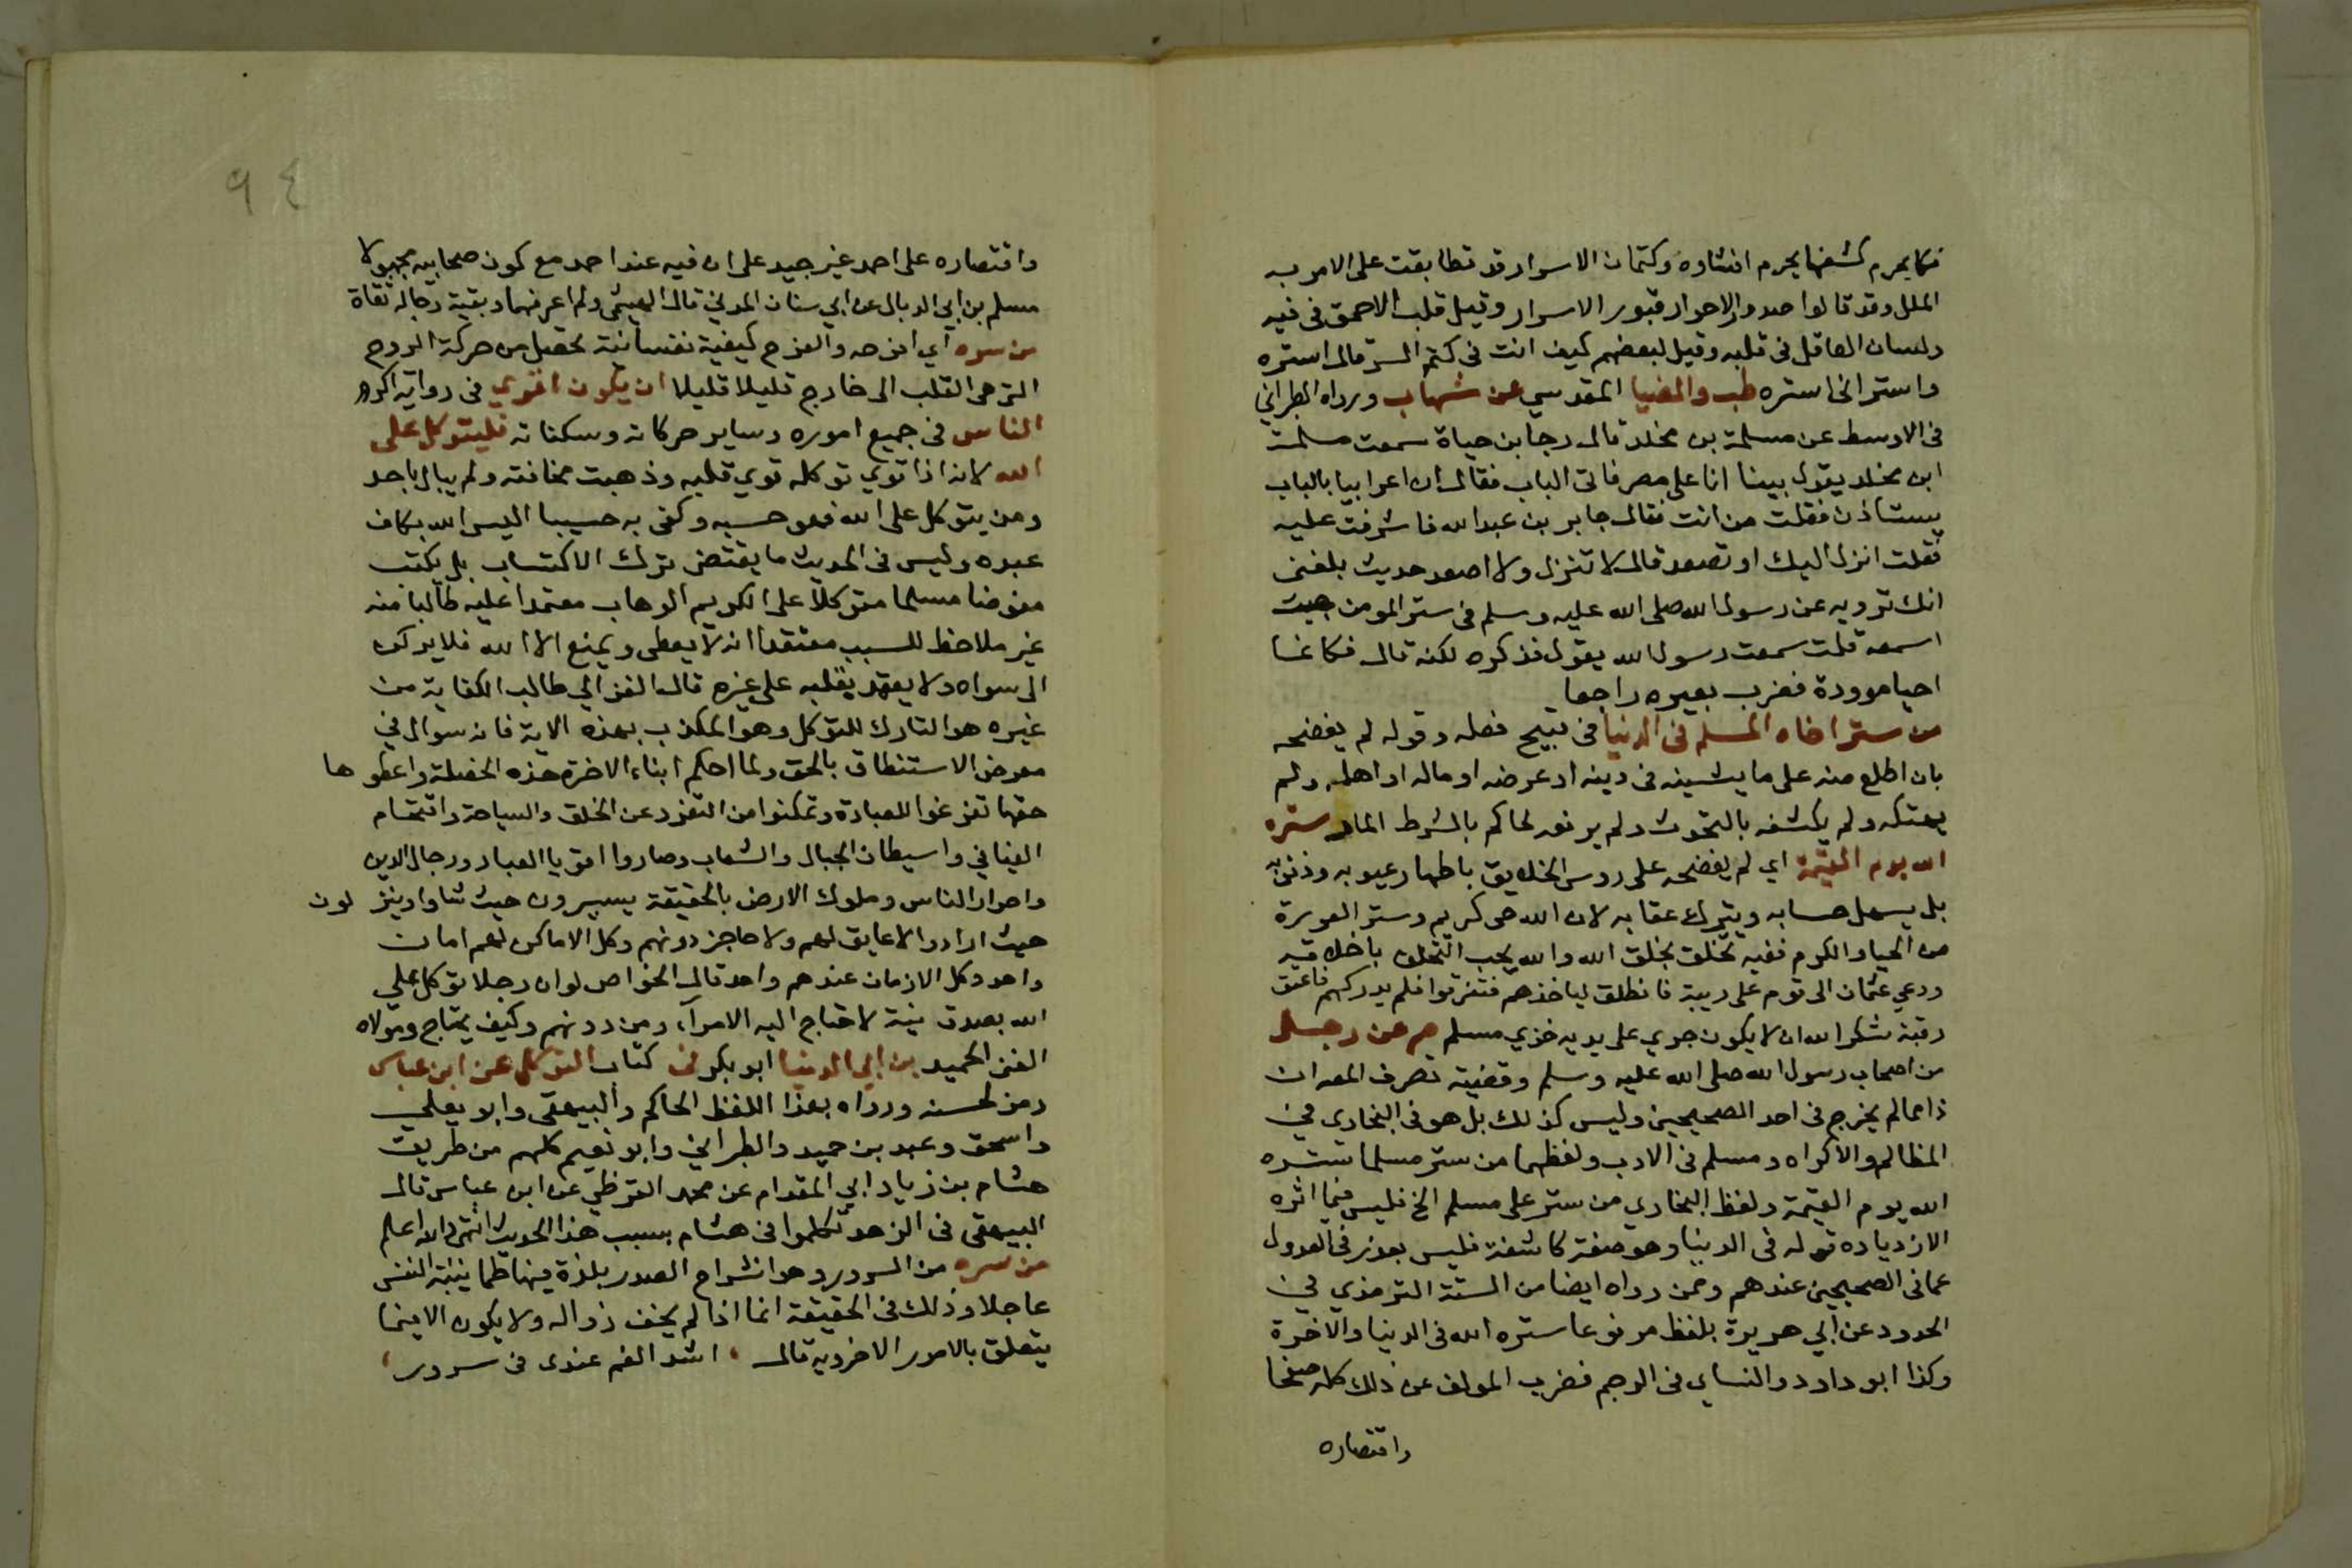 فكما يحرم كشفها يحرم افشاوه وكتمان الاسرار قد تطابقت على الامر به
الملل وقد قالوا صدور الاحرار قبور الاسرار وقيل قلب الاحمق في فيه
ولسان العاقل في قلبه وقيل لبعضهم كيف انت في كتم السر قال استره
واستر اني استره طب والضيا المقدسي عن شهاب ورواه الطبراني
في الاوسط عن مسلمة بن مخلد قال رجا بن حياة سمعت مسلمة
ابن مخلد يقول بينا انا على مصر فاتى الباب فقال ان اعرابيا بالباب
يستاذن فقلت من انت فقال جابر بن عبد الله فاشرفت عليه
فقلت انزل اليك او تصعد قال لا تنزل ولا اصعد حديث بلغني
انك ترويه عن رسول الله صلى الله عليه وسلم في ستر المومن جيت
اسمعه قلت سمعت رسول الله يقول فذكره لكنه قال فكانما
احيا موودة فضرب بعيره راجعا
من ستر اخاه المسلم في الدنيا في قبيح فعله وقوله لم يفضحه
بان اطلع منه على ما يشينه في دينه او عرضه او ماله او اهله ولم
يهتكه ولم يكشفه بالتحدث ولم يرفعه لحاكم بالشرط المار ستره
الله يوم القيمة اي لم يفضحه على روس الخلايق باظهار عيوبه وذنوبه
بل يسهل حسابه ويترك عقابه لان الله حي كريم وستر العورة
من الحيا والكرم ففيه تخلق بخلق الله والله يحب التخلق باخلاقه
ودعي عثمان الى قوم على ريبة فانطلق لياخذهم فتفرقوا فلم يدركهم فاعتق
رقبة شكرا لله ان لا يكون جري على يديه خزي مسلم حم عن رجل
من اصحاب رسول الله صلى الله عليه وسلم وقضية تصرف المص ان
ذا مما لم يخرج في احد الصحيحين وليس كذلك بل هو في البخاري في
المظالم والاكراه ومسلم في الادب ولفظهما من ستر مسلما ستره
الله يوم القيمة ولفظ البخاري من ستر على مسلم الخ فليس فيما اثره
الا زدياده قوله في الدنيا وهو صفة كاشفة فليس بعذر في العدول
عما في الصحيحين عندهم وممن رواه ايضا من الستة الترمذي في
الحدود عن ابي هريرة بلفظ مرفوعا ستره الله في الدنيا والاخرة
وكذا ابو داود والنساي في الرجم فضرب المولف عن ذلك كله صفحا
واقتصاره
٩٤
واقتصاره على احمد غير جيد على ان فيه عند احمد مع كون صحابيه مجهولا
مسلم بن ابي الدبال عن ابي سنان المدني قال الهيثمي ولم اعرفهما وبقية رجاله ثقاة
من سره اي افرحه والفرح كيفية نفسانية تحصل من حركة الروح
التي هي القلب الى خارج قليلا قليلا ان يكون اقوي في رواية اكرم
الناس في جميع اموره وساير حركاته وسكناته فليتوكل على
الله لانه اذا قوي توكله قوي قلبه وذهبت مخافته ولم يبال باحد
ومن يتوكل على الله فهو حسبه وكفى به حسيبا اليس الله بكاف
عبده وليس في الحديث ما يقتضي ترك الاكتساب بل يكتسب
مفوضا مسلما متوكلا على الكريم الوهاب معتمدا عليه طالبا منه
غير ملاحظ للسبب معتقدا انه لا يعطي ويمنع الا الله فلا يركن
الى سواه ولا يعتمد بقلبه على غيره قال الغزالي طالب الكفاية من
غيره هو التارك للتوكل وهو المكذب بهذه الاية فانه سوال في
معرض الاستنطاق بالحق ولما احكم ابناء الاخرة هذه الخصلة واعطوها
حقها تفرغوا للعبادة وتمكنوا من التفرد عن الخلق والسياحة واقتحام
الفيافي واستيطان الجبال والشعاب وصاروا اقويا العباد ورجال الدين
واحرار الناس وملوك الارض بالحقيقة يسيرون حيث شاوا وينزلون
حيث ارادوا لا عايق لهم ولا حاجز دونهم وكل الاماكن لهم امان
واحد وكل الازمان عندهم واحد قال الخواص لو ان رجلا توكل على
الله بصدق نية لاحتاج اليه الامراء ومن دونهم وكيف يحتاج ومولاه
الغني الحميد بن ابي الدنيا ابو بكر في كتاب التوكل عن ابن عباس
رمز لحسنه ورواه بهذا اللفظ الحاكم والبيهقي وابو يعلي
واسحق وعبد بن حميد والطبراني وابو نعيم كلهم من طريق
هشام بن زياد ابي المقدام عن محمد القرظي عن ابن عباس قال
البيهقي في الزهد تكلموا في هشام بسبب هذا الحديث انتهى والله اعلم
من سره من السرور وهو انشراح الصدر بلذة فيها طمانينة النفس
عاجلا وذلك في الحقيقة انما اذا لم يخف زواله ولا يكون الا فيما
يتعلق بالامور الاخروية قال ، اشد الغم عندى في سرور ،